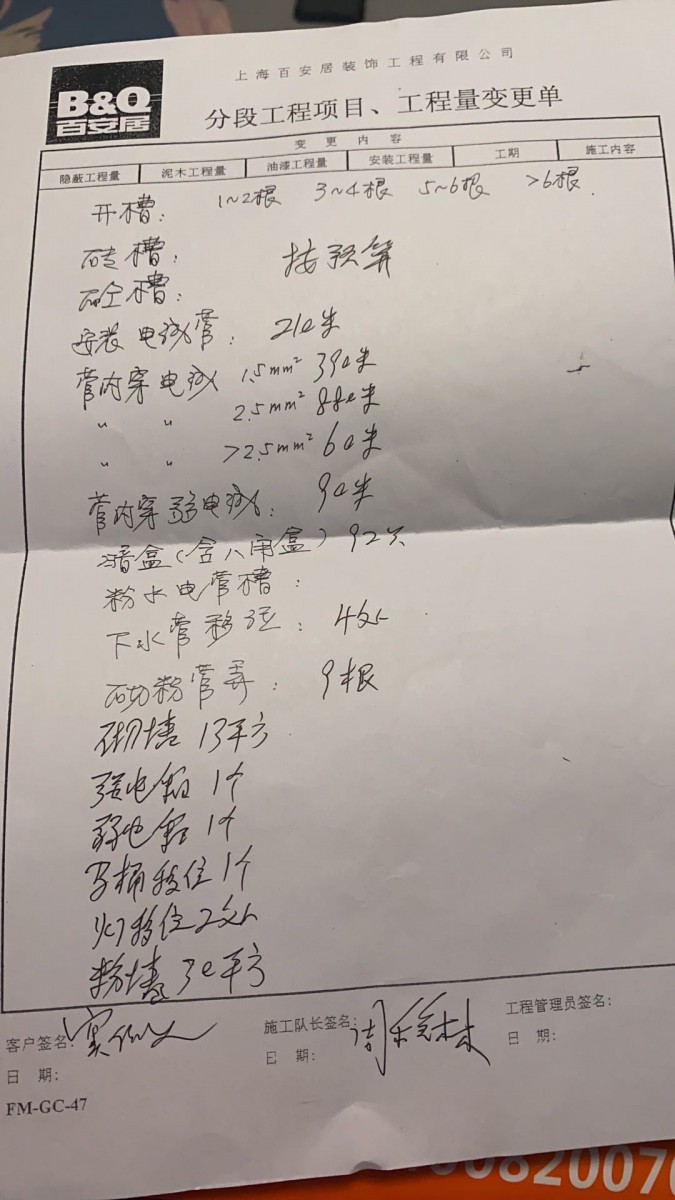 上海百安居装饰工程有限公司
B&Q
百安居
分段工程项目、工程量变更单
变更内容
隐蔽工程量 泥木工程量 油漆工程量 安装工程量 工期 施工内容
开槽: 1~2根 3~4根 5~6根 >6根
砖槽: 按预算
砼槽:
安装电线管: 210米
管内穿电线 1.5mm² 390米
〃 〃 2.5mm² 880米
〃 〃 >2.5mm² 60米
管内穿弱电线: 90米
暗盒(含八角盒) 92只
粉水电管槽:
下水管移位: 4处
砌粉管弄: 9根
砌墙 13平方
强电箱 1个
弱电箱 1个
马桶移位 1个
灯移位 2处
粉墙 30平方
客户签名:
施工队长签名:
工程管理员签名:
日期:
日期:
日期:
FM-GC-47